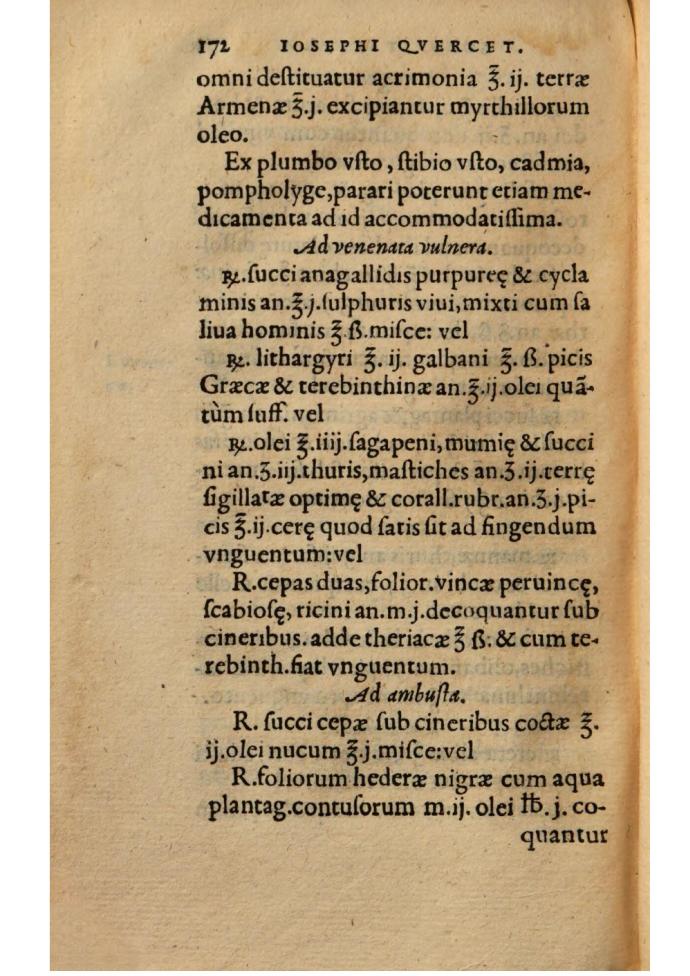 172 IOSEPHI QVERCET.
omni deſtituatur acrimonia ℥̄. ij. terræ
Armenæ ℥̄.j. excipiantur myrthillorum
oleo.
Ex plumbo vſto, ſtibio vſto, cadmia,
pompholyge, parari poterunt etiam me-
dicamenta ad id accommodatiſſima.
Ad venenata vulnera.
℞. ſucci anagallidis purpureę & cycla
minis an.℥̄.j. ſulphuris viui, mixti cum ſa
liua hominis ℥̄ ß. miſce: vel
℞. lithargyri ℥̄. ij. galbani ℥̄. ß. picis
Græcæ & terebinthinæ an.℥̄.ij. olei quã-
tùm ſuff. vel
℞. olei ℥̄.iiij. ſagapeni, mumię & ſucci
ni an.ʒ.iij. thuris, maſtiches an.ʒ.ij. terrę
ſigillatæ optimę & corall. rubr. an.ʒ.j. pi-
cis ℥̄.ij. cerę quod ſatis ſit ad fingendum
vnguentum: vel
R. cepas duas, folior. vincæ peruincę,
ſcabioſę, ricini an. m.j. decoquantur ſub
cineribus. adde theriacæ ℥̄ ß. & cum te-
rebinth. fiat vnguentum.
Ad ambuſta.
R. ſucci cepæ ſub cineribus coctæ ℥̄.
ij. olei nucum ℥̄.j. miſce: vel
R. foliorum hederæ nigræ cum aqua
plantag. contuſorum m.ij. olei ℔. j. co-
quantur